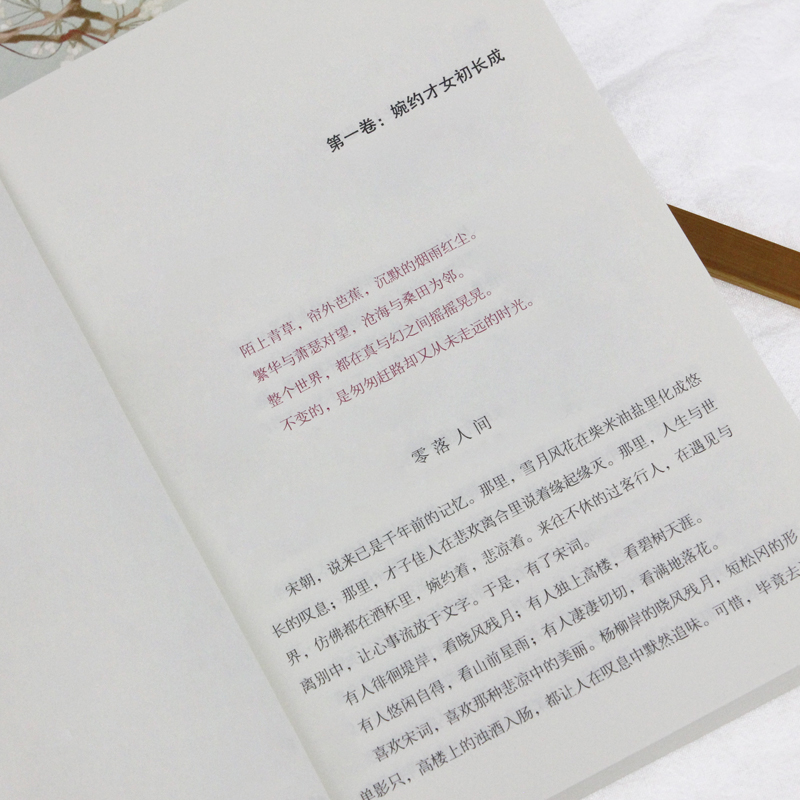 第一卷：婉约才女初长成
陌上青草，帘外芭蕉，沉默的烟雨红尘。
繁华与萧瑟对望，沧海与桑田为邻。
整个世界，都在真与幻之间摇摇晃晃。
不变的，是匆匆赶路却又从未走远的时光。
零落人间
宋朝，说来已是千年前的记忆。那里，雪月风花在柴米油盐里化成悠
长的叹息；那里，才子佳人在悲欢离合里说着缘起缘灭。那里，人生与世
界，仿佛都在酒杯里，婉约着，悲凉着。来往不休的过客行人，在遇见与
离别中，让心事流放于文字。于是，有了宋词。
有人徘徊堤岸，看晓风残月；有人独上高楼，看碧树天涯。
有人悠闲自得，看山前星雨；有人凄凄切切，看满地落花。
喜欢宋词，喜欢那种悲凉中的美丽。杨柳岸的晓风残月，短松冈的形
单影只，高楼上的浊酒入肠，都让人在叹息中默然追味。可惜，毕竟去